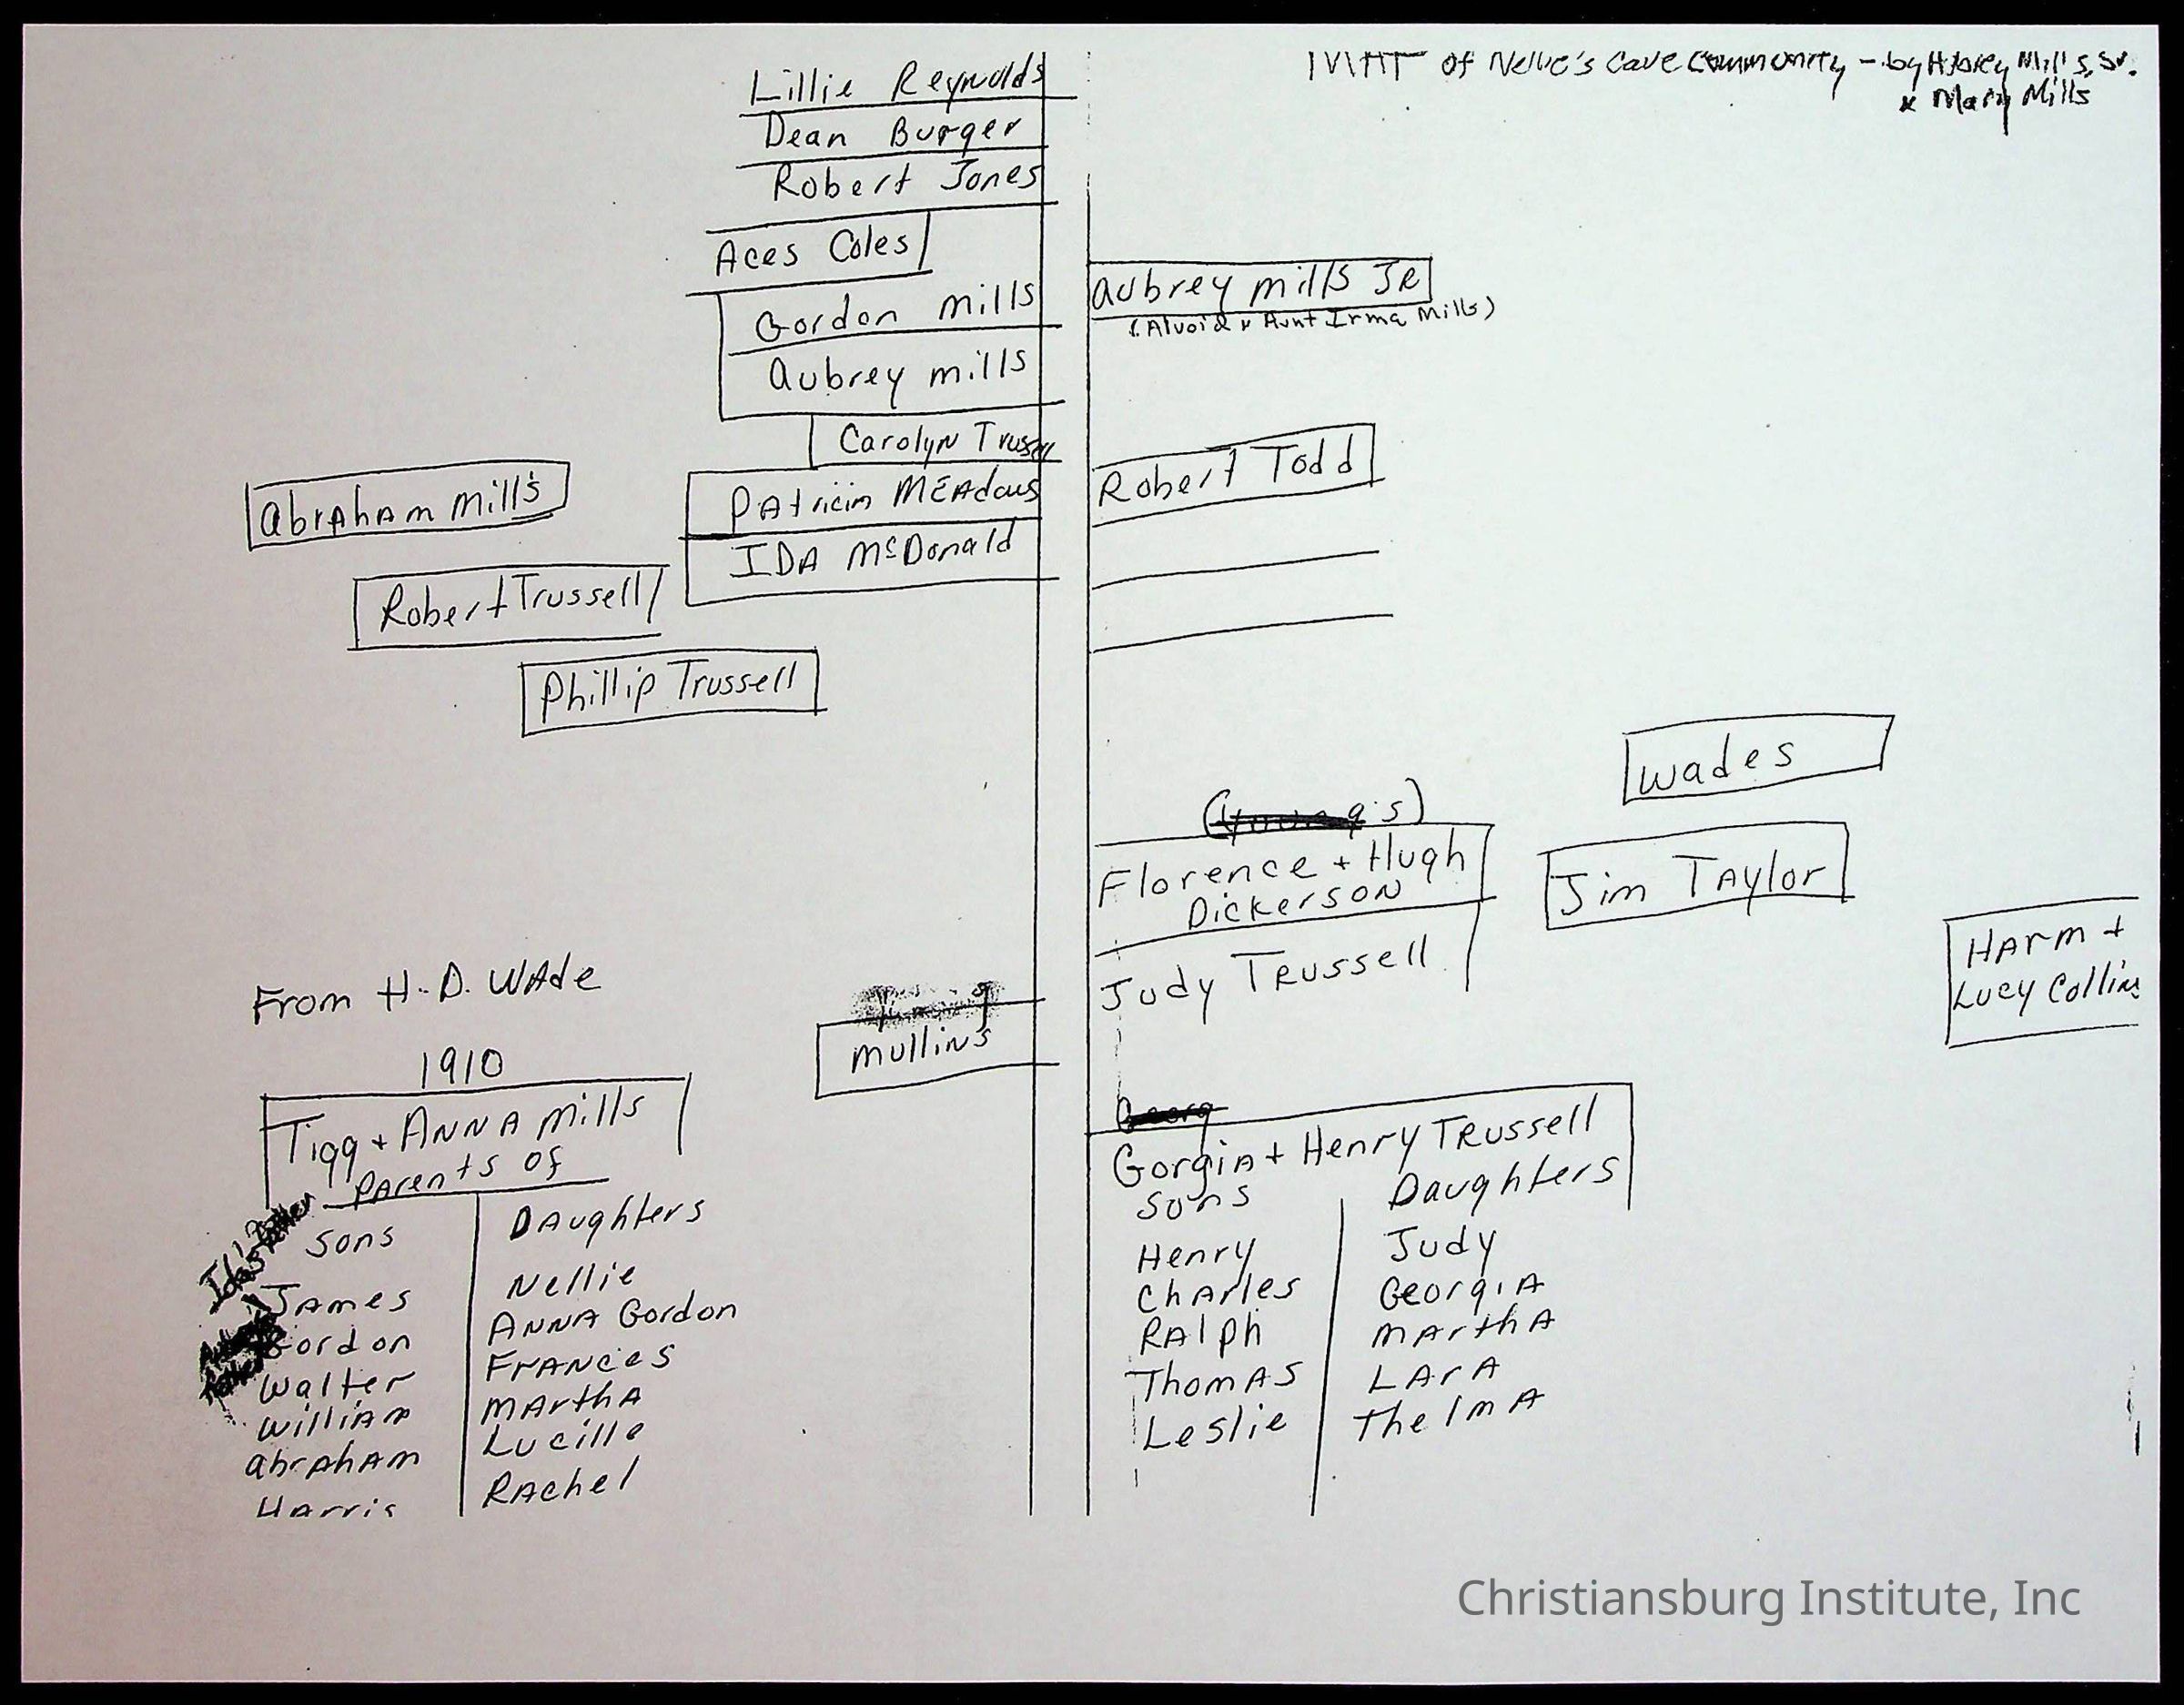 MAP of Nellie's Cave Community - by Aubrey Mills, Sr.
& Mary Mills
Lillie Reynolds
Dean Burger
Robert Jones
Aces Coles
Gordon Mills
Aubrey Mills
Carolyn Trussell
Patricia Meadows
IDA McDonald
Abraham Mills
Robert Trussell
Phillip Trussell
Aubrey Mills JR
Aunt Irma Mills)
Robert Todd
Wades
Florence + Hugh
Dickerson
Jim Taylor
Judy Trussell
Harm +
Lucy Collins
Mullins
From H. D. Wade
1910
Tigg + Anna Mills
Parents of
Sons
Daughters
James
Gordon
Walter
William
Abraham
Harris
Nellie
Anna Gordon
Frances
Martha
Lucille
Rachel
Gorgia + Henry Trussell
Sons
Daughters
Henry
Charles
Ralph
Thomas
Leslie
Judy
Georgia
Martha
Lara
Thelma
Christiansburg Institute, Inc